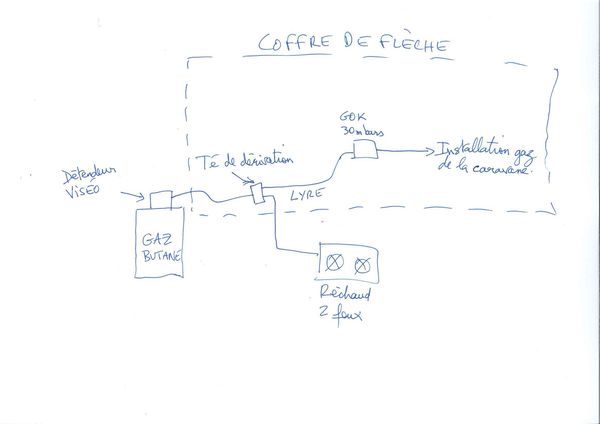 COFFRE DE FLÈCHE
GOK
30mbars
Té de dérivation
Installation gaz
de la caravane.
Détendeur
VISÉO
LYRE
GAZ
BUTANE
Réchaud
2 feux